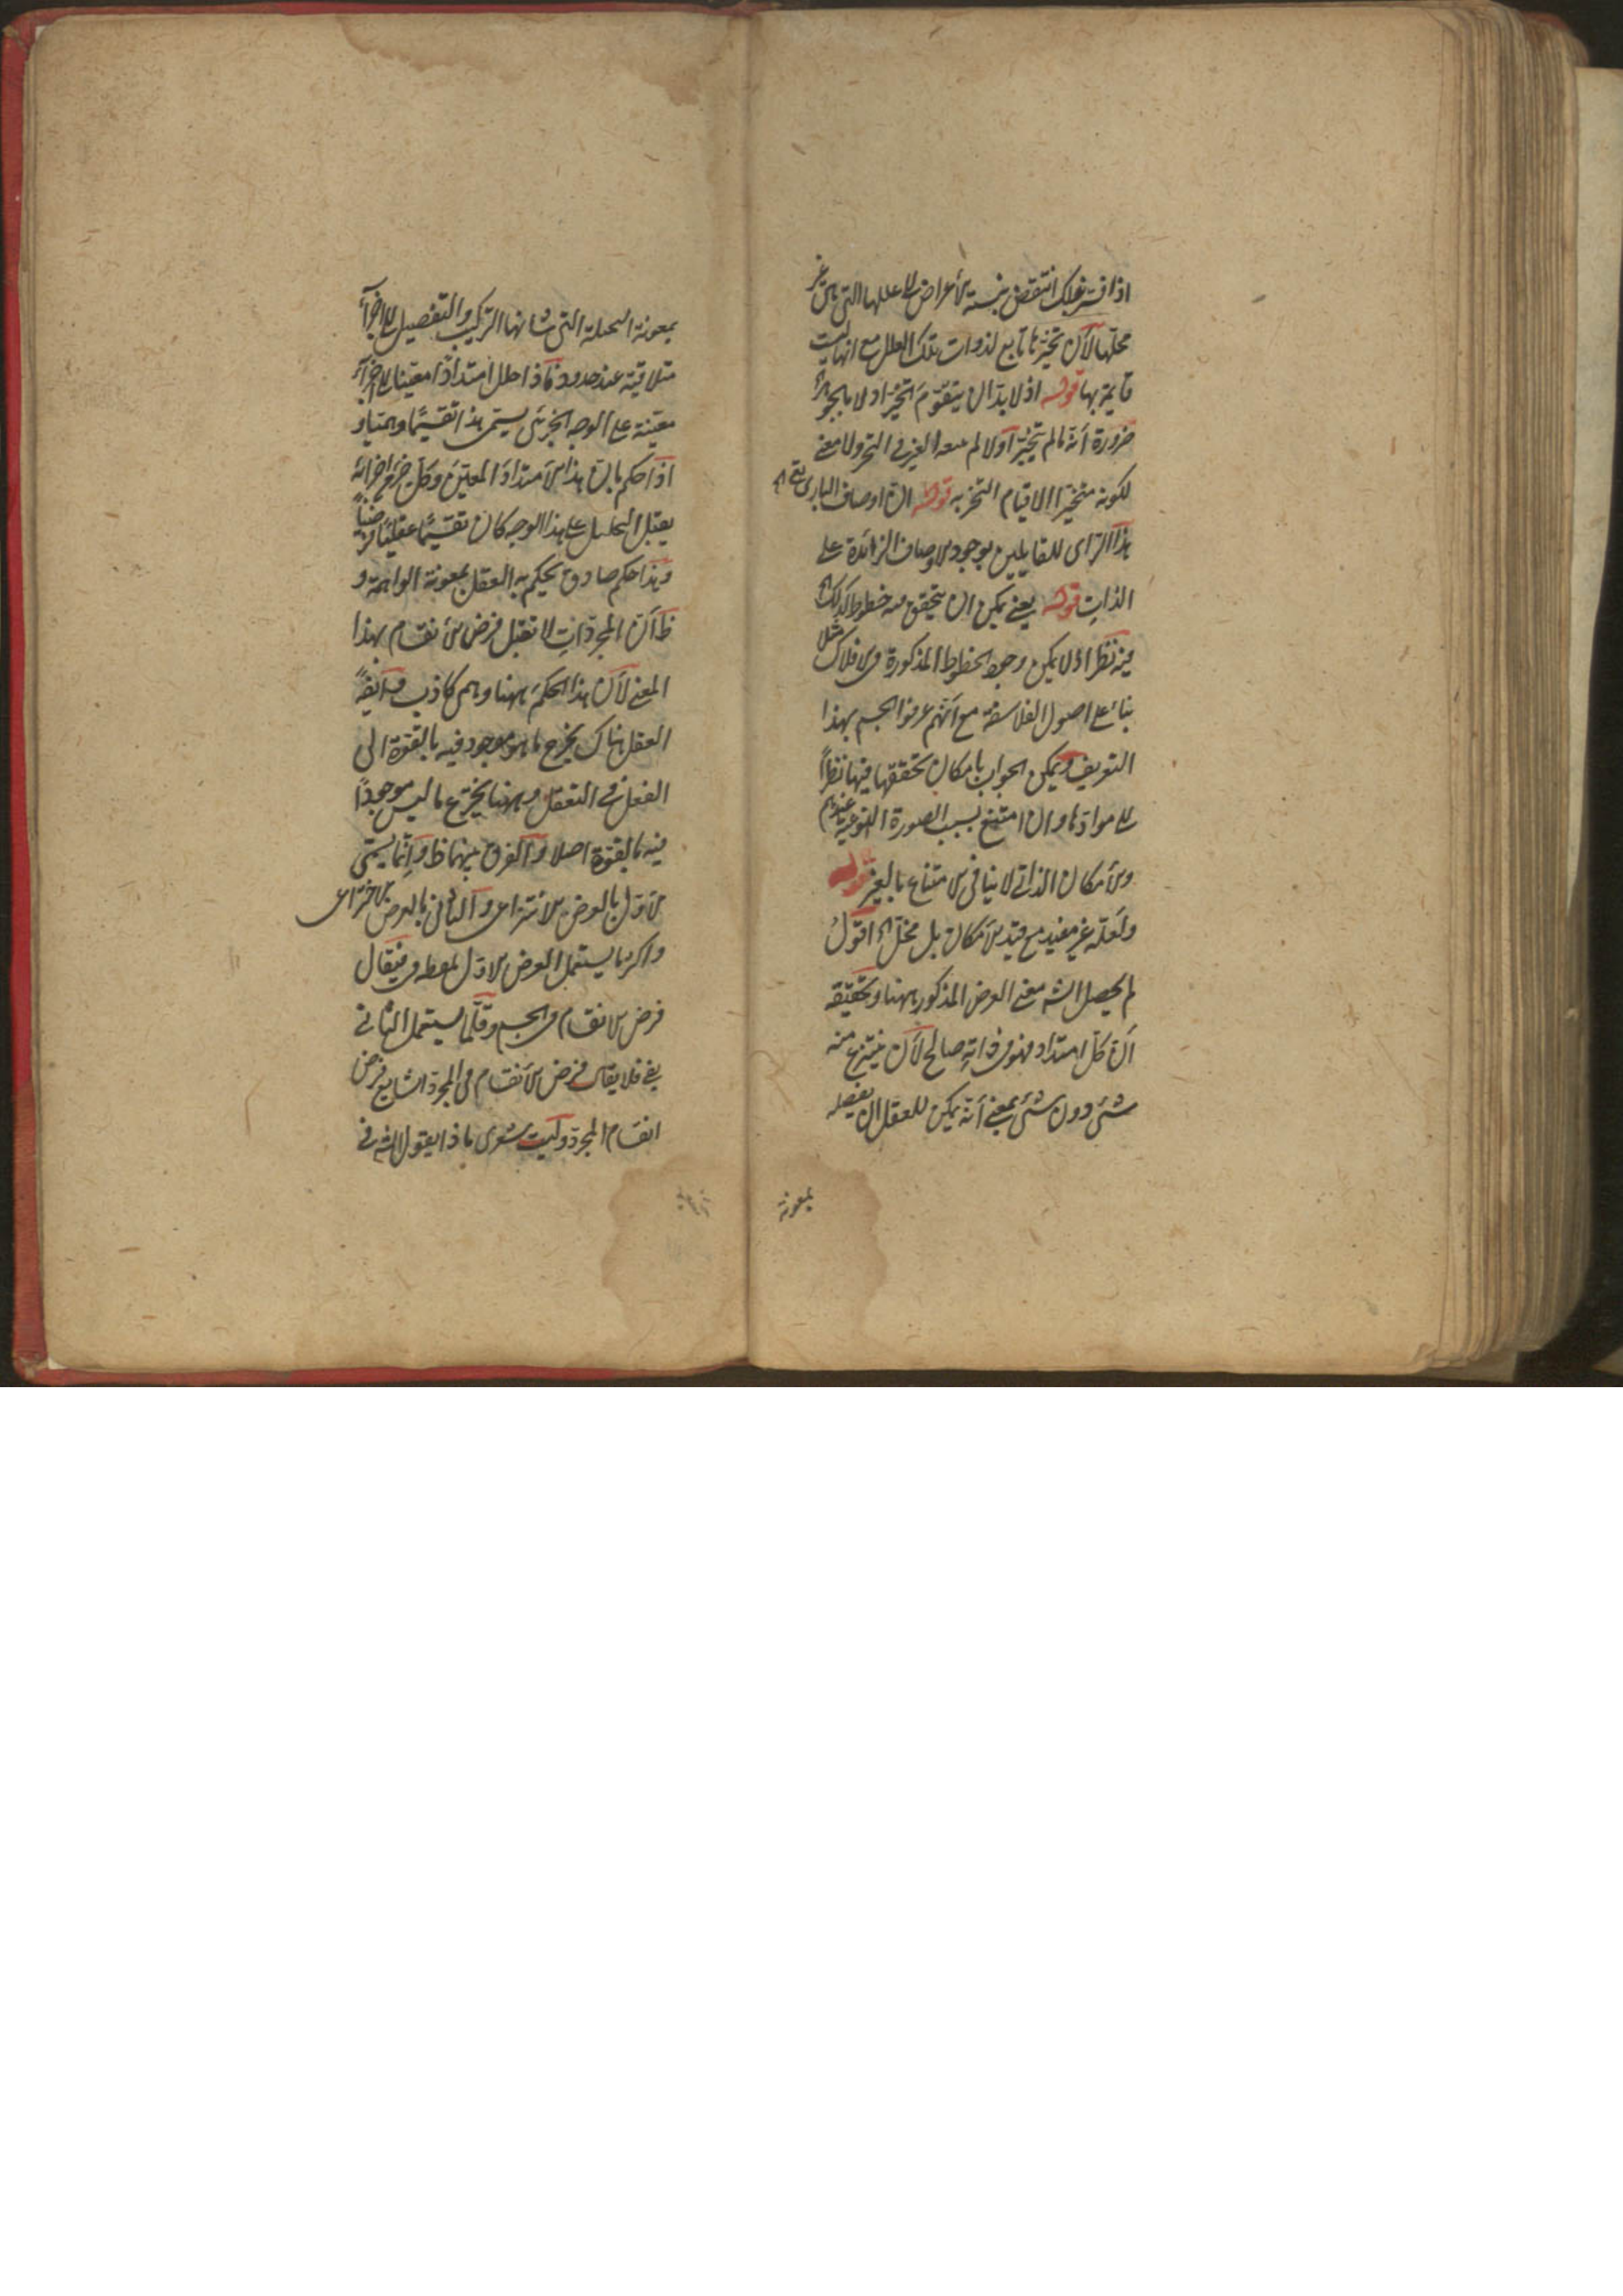 اذا فسر بذلك انتقض بنسبة الأعراض الى عللها التى هى غير
محلها لأن تحيزها تابع لذوات تلك العلل مع انها ليست
قايمة بها قوله اذ لا بد ان يتقوم التحيز اولا بالجوهر
ضرورة أنه ما لم يتحيز أولا لم الغير فى التحيز ولا معنى
لكونه متحيزا الا قيام التحيز به قوله ان اوصاف البارى تع اه
هذا الراى للقايلين بوجود الاوصاف الزائدة على
الذات قوله يعنى يمكن ان يتحقق فيه خطوط كذلك اه
فيه نظر اذ لا يمكن وجود الخطوط المذكورة فى الافلاك مثلا
بناء على اصول الفلاسفة مع أنهم عرفوا الجسم بهذا
التعريف ويمكن الجواب بامكان تحققها فيها نظراً
الى موادها وان امتنع بسبب الصورة النوعية عندهم
والأمكان الذاتى لا ينافى الامتناع بالغير قوله
ولعله غير مفيد مع قيد الأمكان بل مخل اه اقول
لم يحصل الشه معنى الفرض المذكور ههنا وتحقيقه
أن كل امتداد فهو فى ذاته صالح لأن ينتزع منه
شئ دون شئ بمعنى أنه يمكن للعقل ان يفصله
بمعونة
بمعونة المخيلة التى شانها التركيب والتفصيل الى اجزآء
متلاقية عند حدود فاذا حلل امتدادا معينا الى اجزآء
معينة على الوجه الجزئى يسمى هذا تقسيمًا وهميا و
اذا حكم بان هذا الامتداد المعين وكل جزء من اجزائه
يقبل التحليل على هذا الوجه كان تقسيمًا عقليًا فرضياً
وهذا حكم صادق يحكم به العقل بمعونة الواهمة و
ظ أن المجردات لا تقبل فرض الأنقسام بهذا
المعنى لأن هذا الحكم ههنا وهمى كاذب وايضًا
العقل هناك يخرج ما هو موجود فيه بالقوة الى
الفعل فى التعقل وههنا يخترع ما ليس موجودًا
فيه بالقوة اصلا والفرق بينهما ظ وانما يسمى
الاول بالفرض الأنتزاعى والثانى بالفرض الاختراعى
واكثر ما يستعمل الفرض الاول بلفظة فى فيقال
فرض الانقسام فى الجسم وقلما يستعمل الثانى
بفى فلا يقال فرض الأنقسام فى المجرد الشايع فرض
انقسام المجرد وليت شعرى ماذا يقول الشه فى